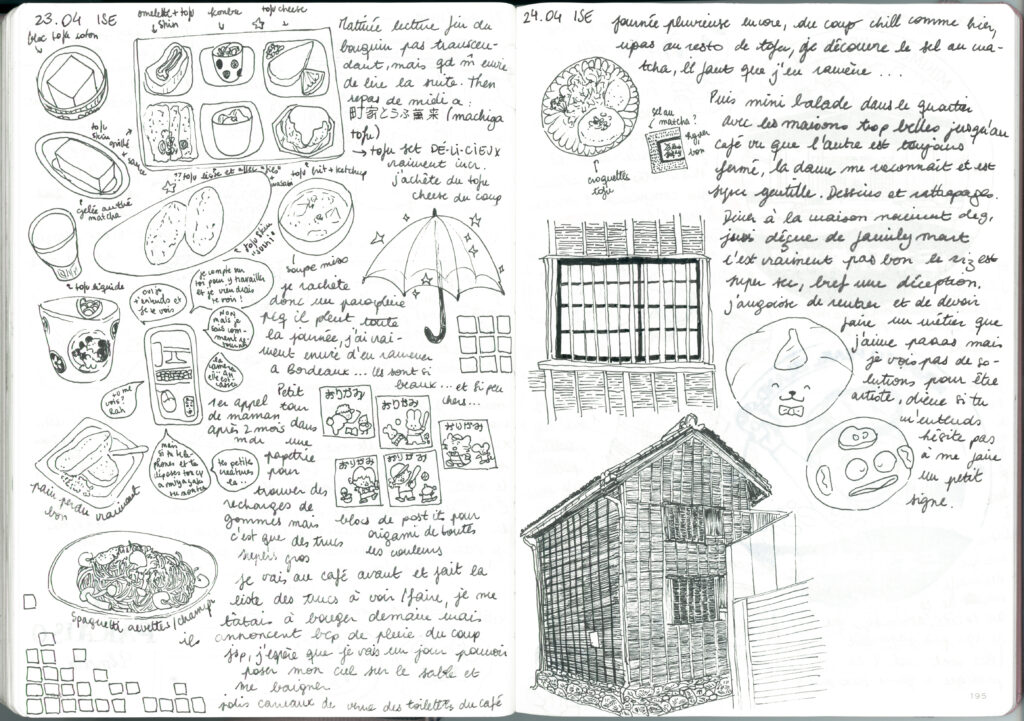 23.04 ISE
bloc tofu coton
omelette + tofu skin
konbu
tofu cheese
tofu skin grillé + sauce
gelée au thé matcha
tofu frit + ketchup
tofu skin "sushi"
soupe miso
tofu liquide
Matinée lecture fin du
bouquin pas transcen-
dant, mais qd m̂ envie
de lire la suite. Then
repas de midi à :
町家とうふ萬来 (machiga
tofu)
→ tofu set DÉ-LI-CIEUX
vraiment incr.
j'achète du tofu
cheese du coup
je rachète
donc un parapluie
pcq il pleut toute
la journée, j'ai vrai-
ment envie d'en ramener
à Bordeaux... Ils sont si
beaux... et si peu
chers...
oui je t'entends et je te vois
je compte sur toi pour y travailler et je viendrais te voir !
NON mais je sais comment ça
la caméra elle est cassée
tu me vois ? Bah
mais si tu téléphones et tu
tes petites créatures là...
1er appel
de maman
après 2 mois
Petit
tour
dans
une
papeterie
pour
trouver des
recharges de
gommes mais
c'est que des trucs
supers gros
おりがみ
おりがみ
おりがみ
おりがみ
おりがみ
blocs de post its pour
origami de toutes
les couleurs
pain perdu vraiment
bon
Spaghetti crevettes/champi
je vais au café avant et fait la
liste des trucs à voir/faire, je me
tâtais à bouger demain mais
annoncent bcp de pluie du coup
jsp, j'espère que je vais un jour pouvoir
poser mon cul sur le sable et
me baigner
jolis carreaux de verre des toilettes du café
24.04 ISE
journée pluvieuse encore, du coup chill comme hier,
repas au resto de tofu, je découvre le sel au ma-
tcha, il faut que j'en ramène...
croquette tofu
sel au matcha ?
hyper bon
Puis mini balade dans le quartier
avec les maisons trop belles jusqu'au
café vu que l'autre est toujours
fermé, la dame me reconnait et est
hyper gentille. Dessins et rattrapages.
Dîner à la maison moment deg,
suis déçue de family mart
c'est vraiment pas bon le riz est
super sec, bref une déception,
j'angoisse de rentrer et de devoir
faire un métier que
j'aime paaas mais
je vois pas de so-
lutions pour être
artiste, dieue si tu
m'entends
hésite pas
à me faire
un petit
signe.
195